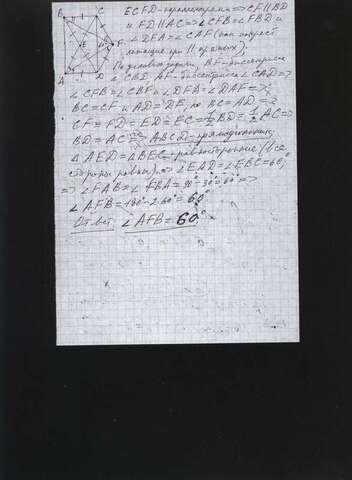 B C
ECFD - параллелограмм => CF||BD
и FD||AC => ∠CFB = ∠FBD и
∠DFA = ∠CAF (как накрест
лежащие при || прямых).
По условию задачи, BF - биссектриса
∠CBD, AF - биссектриса ∠CAD =>
∠CFB = ∠CBF и ∠DFA = ∠DAF =>
BC = CF и AD = DF, но BC = AD =>
CF = FD = ED = EC = 1/2 BD = 1/2 AC =>
BD = AC => ABCD - прямоугольник,
∆AED = ∆BEC - равносторонние
стороны равны) => ∠EAD = ∠EBC = 60°,
=> ∠FAB = ∠FBA = 90° - 30° = 60° =>
∠AFB = 180° - 2·60° = 60°
Ответ: ∠AFB = 60°
E F
A D